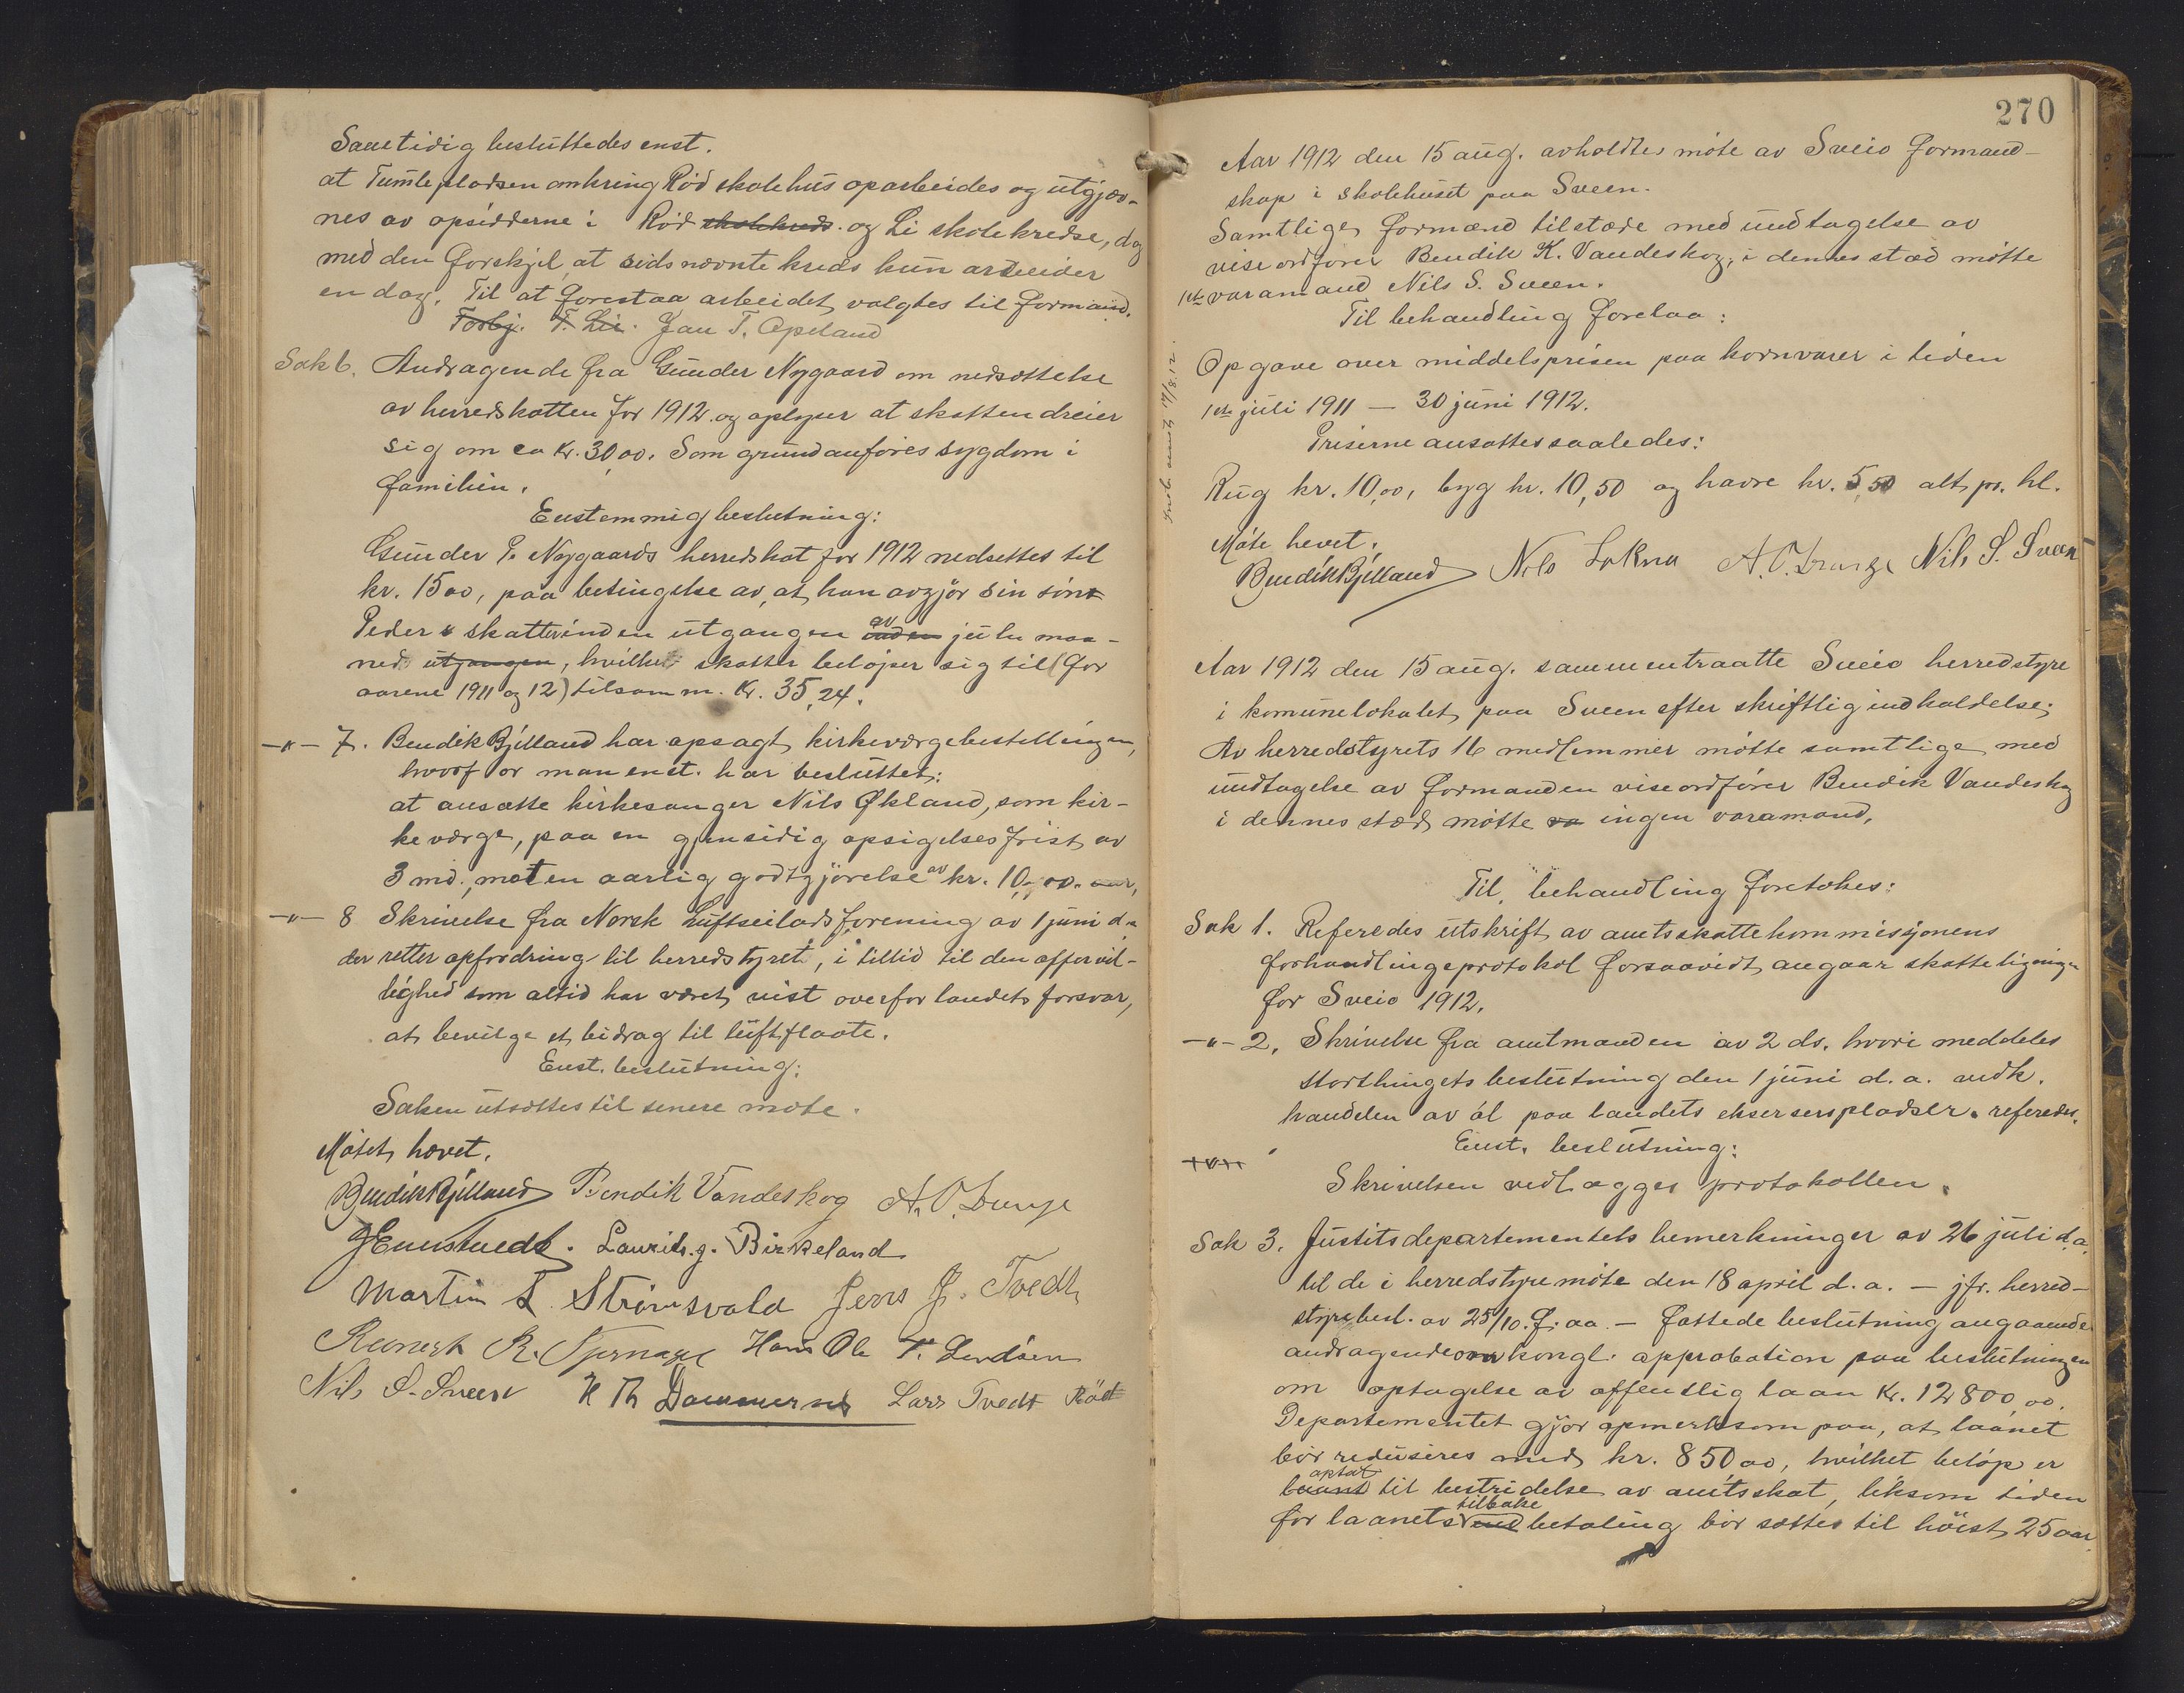 Samtidig besluttedes enst.
at Tumlepladsen omkring Röd skolehus oparbeides og utgjæv-
nes av opsidderne i Röd skolekreds og Li skolekredse, dog
med den forskjel at sidsnevnte kreds kun arbeider
en dag. Til at forestaa arbeidet valgtes til formand.
Torbj. T. Lie. Jan T. Opeland
Sak 6. Andragende fra Gunder Nygaard om nedsættelse
av herredskatten for 1912 og oplyser at skatten dreier
sig om ca kr. 30,00. Som grund anføres sygdom i
familien.
Enstemmig beslutning:
Gunder P. Nygaards herredskat for 1912 nedsettes til
kr. 15 00, paa betingelse av, at han avgjör sin söns
Peders skatter inden utgangen av inden juli maa-
ned utgangen, hvilke skatter belöper sig til (for
aarene 1911 og 12) tilsamm. kr. 35,24.
-"- 7. Bendik Bjelland har opsagt kirkeværgebestillingen,
hvorfor man enst. har besluttet:
at ansætte kirkesanger Nils Økland, som kir-
keværge, paa en gjensidig opsigelsesfrist av
3 md., mot en aarlig godtgjörelse av kr. 10,00.
-"- 8 Skrivelse fra Norsk Luftseiladsforening av 1 juni d.a.
der retter opfordring til herredstyret, i tillid til den offervil-
lighed som altid har været vist overfor landets forsvar,
at bevilge et bidrag til luftflaate.
Enst. beslutning:
Saken utsættes til senere møte.
Mötet hævet.
Bendik Bjelland Bendik Vandeskog A. O. Drange
J Emstvedt. Laurits. J. Birkeland
Martin L. Strömsvold Jens J. Tvedt
Reinert R. Tjernagel Hans Ole T. Lendsen
Nils S. Sveen K Th Dommersnes Lars Tvedt Röd
270
Aar 1912 den 15 aug. avholdtes möte av Sveio formand-
skap i skolehuset paa Sveen.
Samtlige formænd tilstæde med undtagelse av
viseordförer Bendik K. Vandeskog, i dennes stæd mötte
1ste varamand Nils S. Sveen.
Til behandling forelaa:
Opgave over middelsprisen paa kornvarer i tiden
1ste juli 1911 — 30 juni 1912.
Priserne ansattes saaledes:
Rug kr. 10,00, byg kr. 10,50 og havre kr. 5,50 alt pr. hl.
Möte hevet.
Bendik Bjelland Nils Lokna A. O. Drange Nils S. Sveen
Aar 1912 den 15 aug. sammentraatte Sveio herredstyre
i komunelokalet paa Sveen efter skriftlig indkaldelse.
Av herredstyrets 16 medlemmer mötte samtlige med
undtagelse av formanden viseordförer Bendik Vandeskog
i dennes stæd mötte va ingen varamand.
Til behandling foretokes:
Sak 1. Referedes utskrift av amtsskattekommisjonens
forhandlingsprotokol forsaavidt angaar skatteligningen
for Sveio 1912.
-"- 2. Skrivelse fra amtmanden av 2 ds. hvori meddeles
storthingets beslutning den 1 juni d.a. vedk.
handelen av öl paa landets ekserserpladser. referedes.
Enst. beslutning:
Skrivelsen vedlægges protokollen.
Sak 3. Justitsdepartementets bemerkninger av 26 juli d.a.
til de i herredstyremöte den 18 april d.a. — jfr. herred-
styrebesl. av 25/10. f. aa. — fattede beslutning angaaende
andragende om kongl. approbation paa beslutningen
om optagelse av offentlig laan kr. 12 800 00.
Departementet gjör opmerksom paa, at laanet
bör reduseres med kr. 850 00, hvilket belöp er
optat laant til bestridelse av amtsskat, liksom tiden
for laanets tilbake ind betaling bör sættes til höist 25 aar.